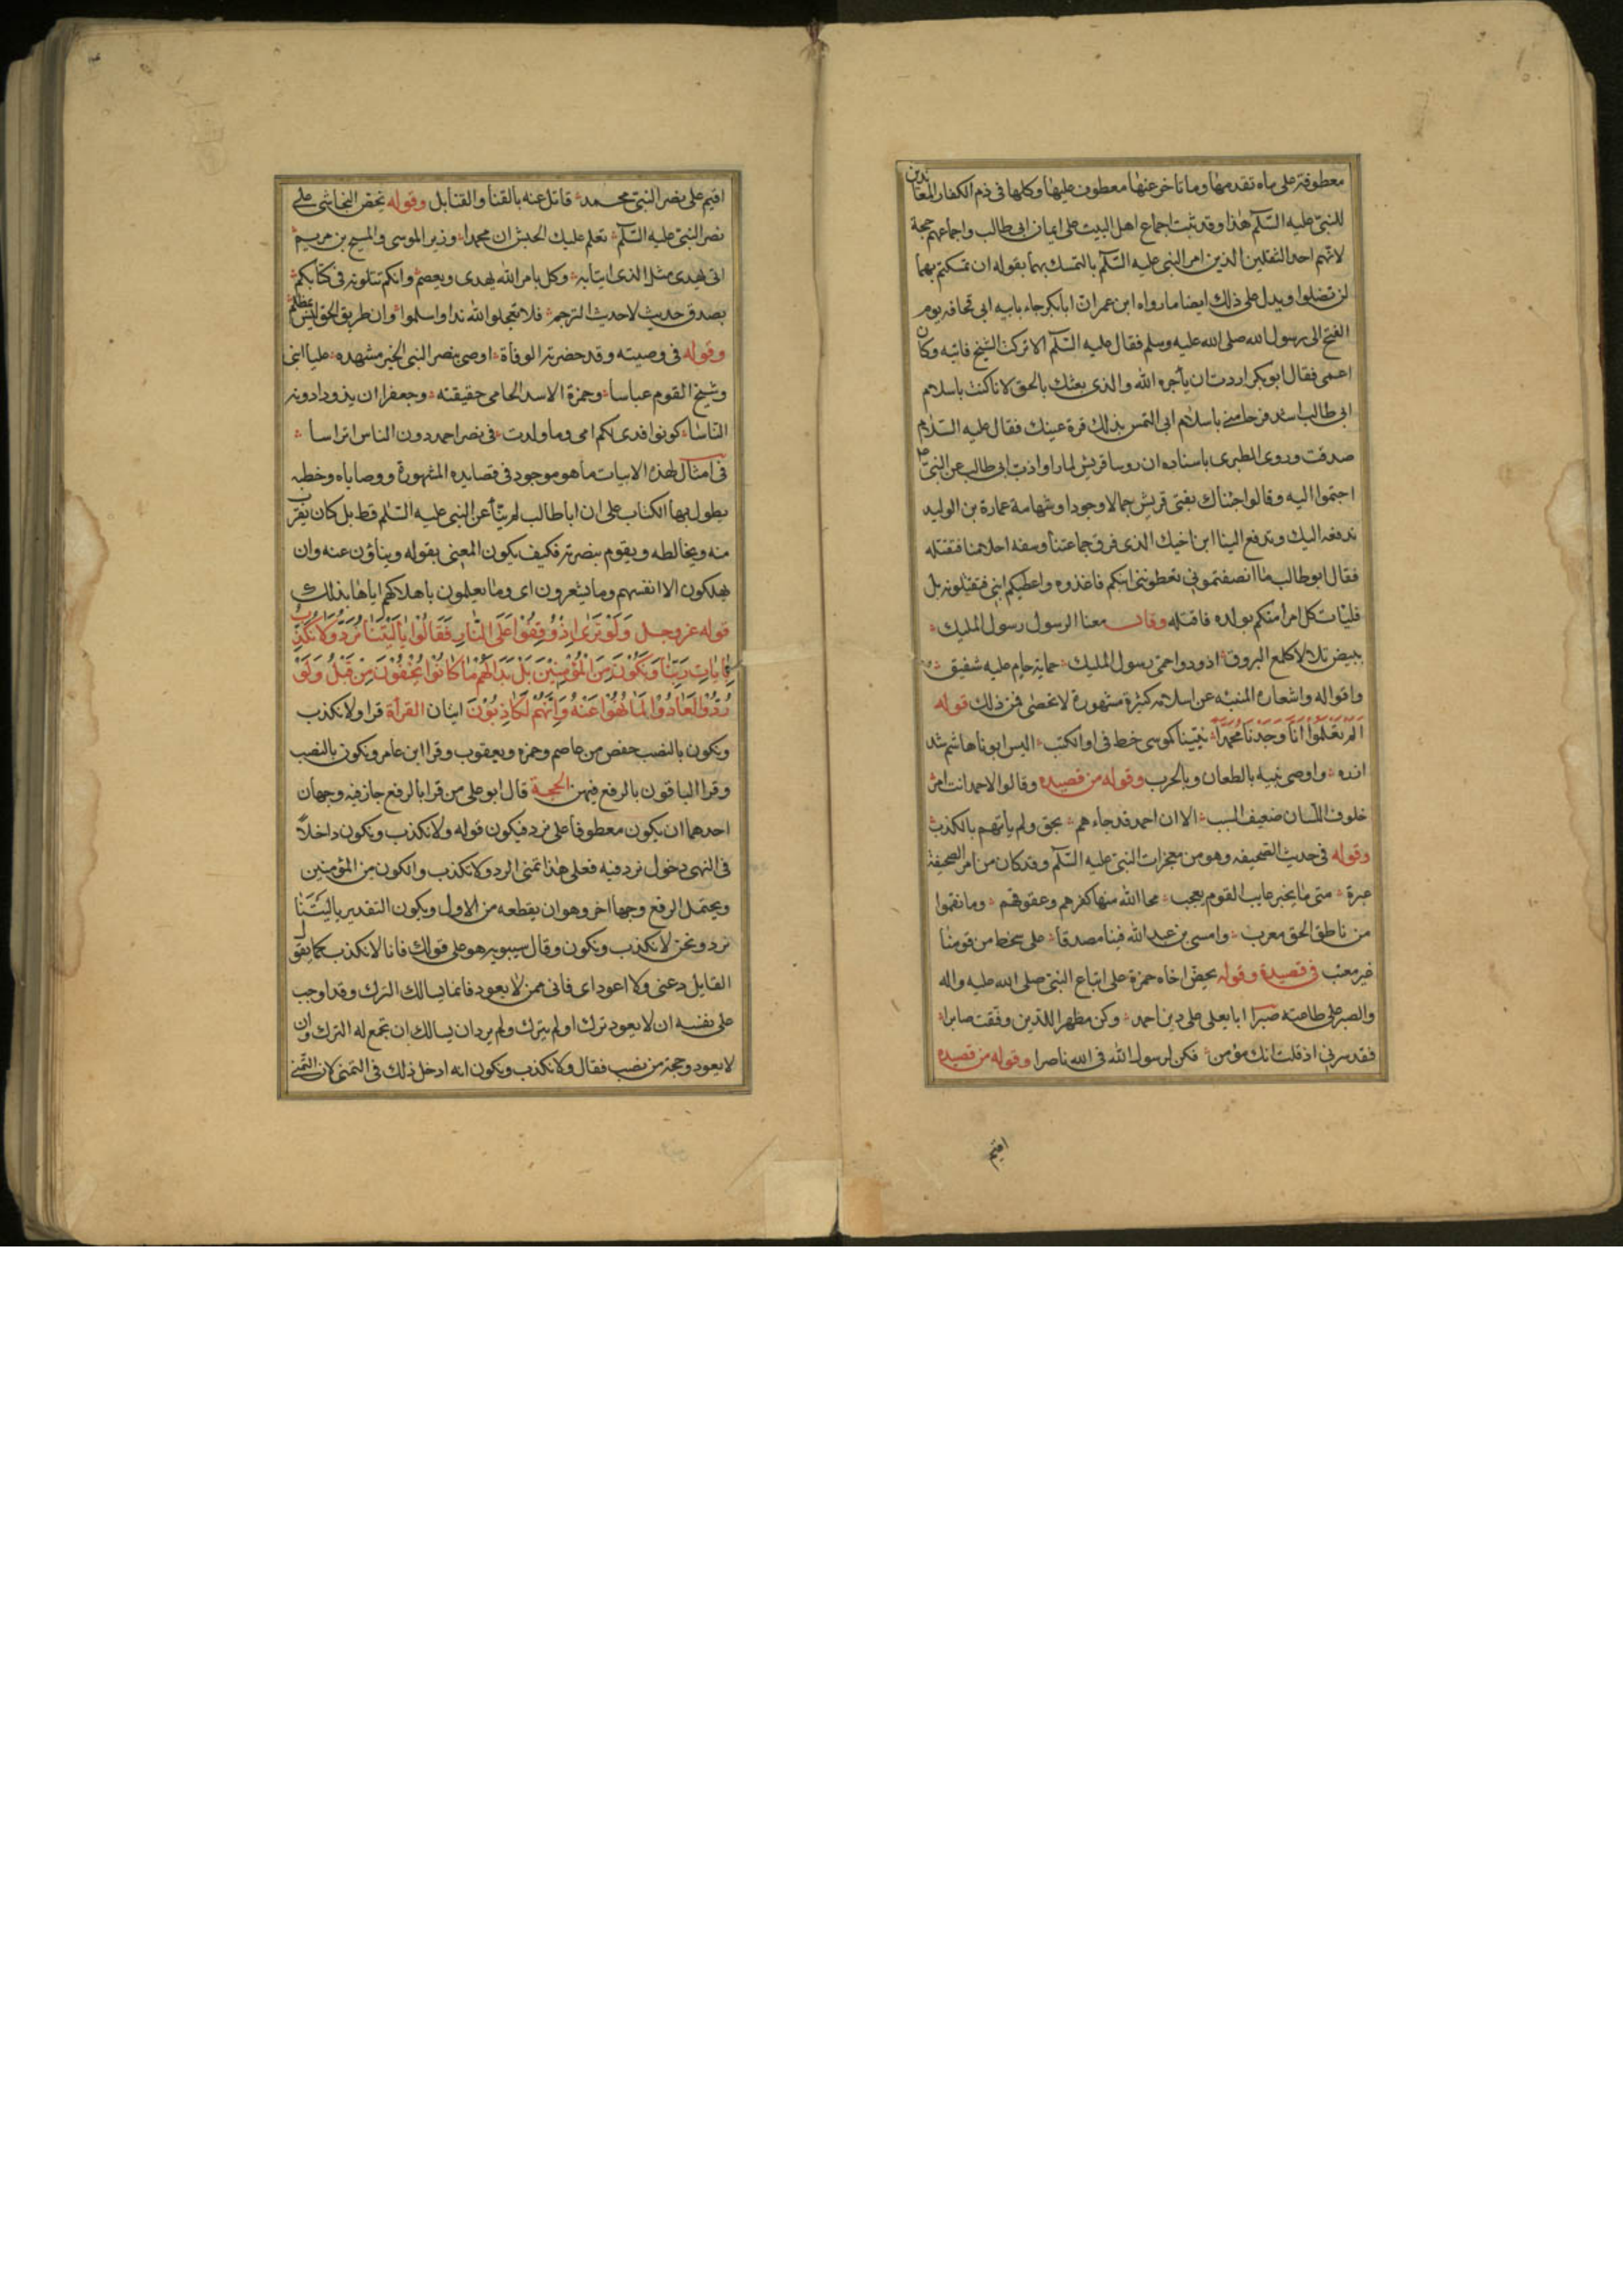 معطوفة على ماه تقدمها وما تاخر عنها معطوف عليها وكلها فى ذم الكفار المعاندين
للنبى عليه السّلم هذا وقد ثبت اجماع اهل البيت على ايمان ابى طالب واجماعهم حجة
لانهم احد الثقلين الذين امر النبى عليه السّلم بالتمسك بهما بقوله ان تمسكتم بهما
لن تضلوا ويدل على ذلك ايضا ما رواه ابن عمر ان ابا بكر جاء بابيه ابى قحافه يوم
الفتح الى رسول الله صلى الله عليه وسلم فقال عليه السّلم الا تركت الشيخ فاتيه وكان
اعمى فقال ابو بكر اردت ان يأجره الله والذى بعثك بالحق لانا كنت باسلام
ابى طالب اشد فرحا منى باسلام ابى التمس بذلك قرة عينك فقال عليه السّلام
صدقت وروى الطبرى باسناده ان روسا قريش لما راوا ذب ابى طالب عن النبى ص
اجتمعوا اليه وقالوا جئناك بفتى قريش جمالا وجودا وشهامة عمارة بن الوليد
ندفعه اليك وتدفع الينا ابن اخيك الذى فرق جماعتنا وسفه احلامنا فنقتله
فقال ابو طالب ما انصفتمونى تعطوننى ابنكم فاغذوه واعطيكم ابنى فتقتلونه بل
فليات كل امرا منكم بولده فاقتله وقال منعنا الرسول رسول المليك
ببيض تلالا كلمع البروق اذود واحمى رسول المليك حماية حام عليه شفيق
واقواله واشعاره المنبئه عن اسلامه كثيرة مشهورة لا تحصى فمن ذلك قوله
اَلَمْ تَعْلَمُوْا اَنَّا وَجَدْنَا مُحَمَّدًا نبيا كموسى خط فى اول الكتب اليس ابونا هاشم شد
ازره واوصى بنيه بالطعان وبالحرب وقوله من قصيده وقالوا لاحمد انت امرؤ
خلوف اللسان ضعيف السبب الا ان احمد قد جاءهم بحق ولم يأتهم بالكذب
وقوله فى حديث الصحيفه وهو من معجزات النبى عليه السّلم وقد كان من امر الصحيفة
عبرة متى ما يخبر غايب القوم يعجب محا الله منها كفرهم وعقوقهم وما نقموا
من ناطق الحق معرب وامسى بن عبد الله فينا مصدقا على سخط من قومنا
غير معتب فى قصيدة وقوله يحض اخاه حمزة على اتباع النبى صلى الله عليه واله
والصبر على طاعته صبرا ابا يعلى على دين احمد وكن مظهرا للدين وفقت صابرا
فقد سرنى اذ قلت انك مؤمن فكن لرسول الله فى الله ناصرا وقوله من قصيده
اقيم
اقيم على نصر النبى محمد قاتل عنه بالقنا والقنابل وقوله يحض النجاشى على
نصر النبى عليه السّلم تعلم مليك الحبش ان محمدا وزير لموسى والمسيح بن مريم
اتى بهدى مثل الذى اتيا به وكل بامر الله يهدى ويعصم وانكم تتلونه فى كتابكم
بصدق حديث لا حديث الترجم فلا تجعلوا لله ندا واسلموا وان طريق الحق ليس بمظلم
وقوله فى وصيته وقد حضرته الوفاة اوصى بنصر النبى الخير مشهده عليا ابنى
وشيخ القوم عباسا وحمزة الاسد الحامى حقيقته وجعفرا ان يذودا دونه
الناسا كونوا فدى لكم امى وما ولدت فى نصر احمد دون الناس اتراسا
فى امثال لهذه الابيات ما هو موجود فى قصايده المشهورة ووصاياه وخطبه
يطول بها الكتاب على ان ابا طالب لم ينأ عن النبى عليه السّلم قط بل كان يقرب
منه ويخالطه ويقوم بنصرته فكيف يكون المعنى بقوله ويناؤن عنه وان
يهلكون الا انفسهم وما يشعرون اى وما يعلمون باهلاكهم اياها بذلك
قوله عز وجل وَلَوْ تَرَىٰ اِذْ وُقِفُوْا عَلَى النَّارِ فَقَالُوْا يَا لَيْتَنَا نُرَدُّ وَلَا نُكَذِّبُ
بِاٰيَاتِ رَبِّنَا وَنَكُوْنَ مِنَ الْمُؤْمِنِيْنَ بَلْ بَدَا لَهُمْ مَا كَانُوْا يُخْفُوْنَ مِنْ قَبْلُ وَلَوْ
رُدُّوْا لَعَادُوْا لِمَا نُهُوْا عَنْهُ وَاِنَّهُمْ لَكَاذِبُوْنَ ايتان القرأة قرا ولا نكذب
ونكون بالنصب حفص عن عاصم وحمزه ويعقوب وقرا ابن عامر ونكون بالنصب
وقرا الباقون بالرفع فيهن الحجة قال ابو على من قرا بالرفع جاز فيه وجهان
احدهما ان يكون معطوفا على نرد فيكون قوله ولا نكذب ونكون داخلًا
فى النهى دخول نرد فيه فعلى هذا تمنى الرد ولا نكذب والكون من المؤمنين
ويحتمل الرفع وجها اخر وهو ان يقطعه من الاول ويكون التقدير يا ليتنا
نرد ونحن لا نكذب ونكون وقال سيبويه هو على قولك فانا لا نكذب كما يقول
القايل دعنى ولا اعود اى فانى ممن لا يعود فانما يسالك الترك وقد اوجب
على نفسه ان لا يعود ترك او لم يترك ولم يرد ان يسالك ان تجمع له الترك وان
لا يعود وحجة من نصب فقال ولا نكذب ونكون انه ادخل ذلك فى التمنى لان التمنى